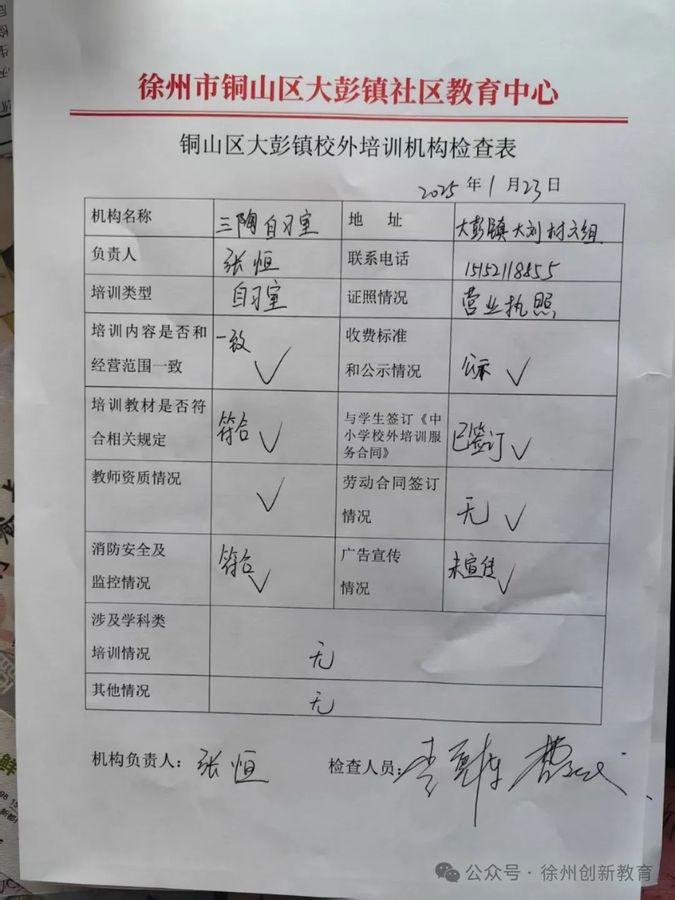 徐州市铜山区大彭镇社区教育中心
铜山区大彭镇校外培训机构检查表
2025年1月23日
机构名称 三陶自习室 地 址 大彭镇大刘村六组
负责人 张恒 联系电话 15152118855
培训类型 自习室 证照情况 营业执照
培训内容是否和经营范围一致 一致 ✓ 收费标准和公示情况 公示 ✓
培训教材是否符合相关规定 符合 ✓ 与学生签订《中小学校外培训服务合同》 已签订 ✓
教师资质情况 ✓ 劳动合同签订情况 无 ✓
消防安全及监控情况 符合 ✓ 广告宣传情况 未宣传 ✓
涉及学科类培训情况 无
其他情况 无
机构负责人：张恒 检查人员：
公众号·徐州创新教育